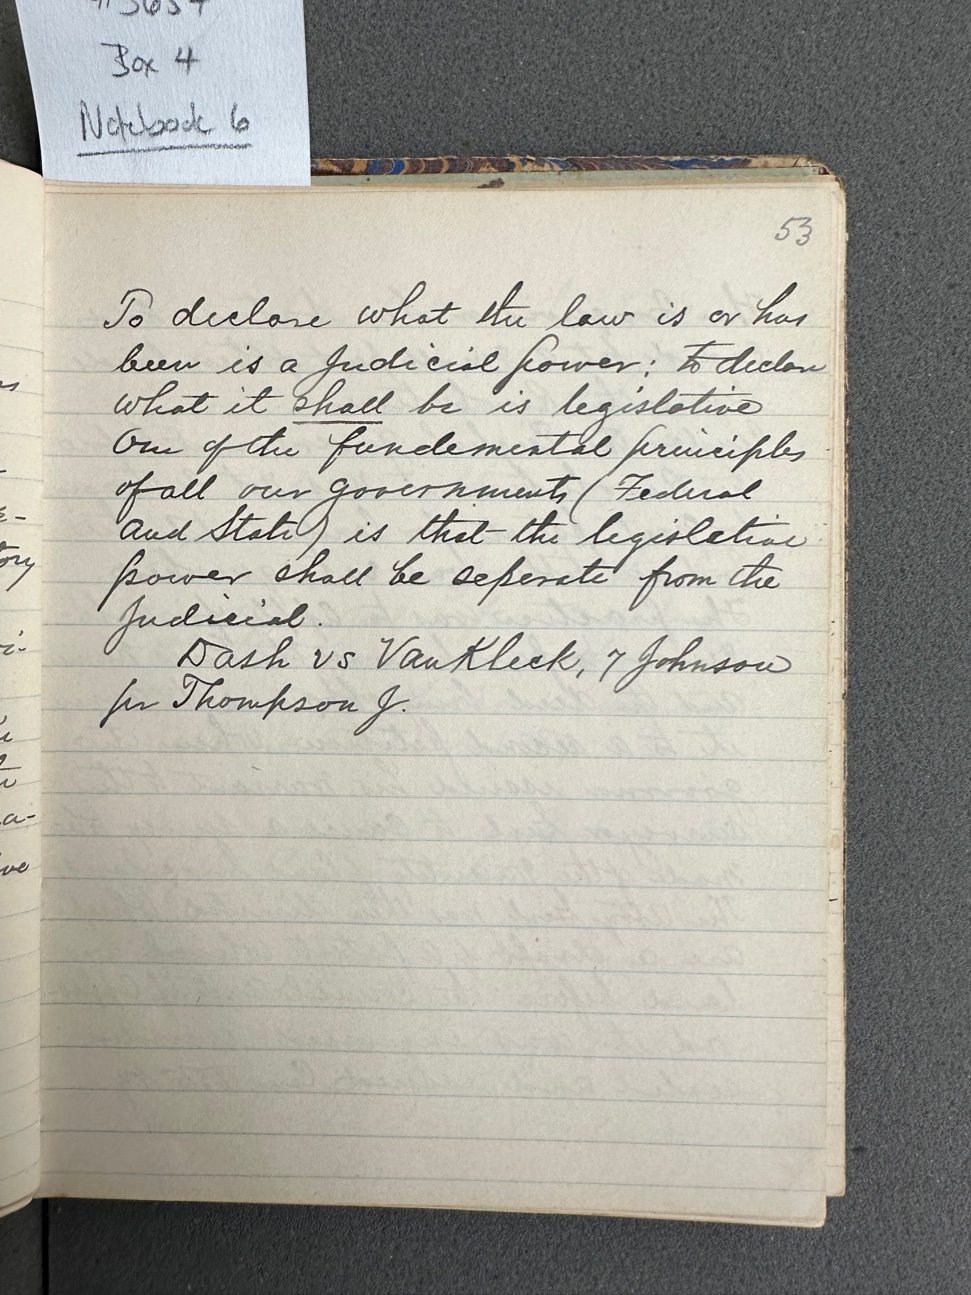 Box 4
Notebook 6
53
To declare what the law is or has
been is a Judicial power; to declare
what it shall be is legislative
One of the fundemental principles
of all our governments (Federal
and State) is that the legislative
power shall be seperate from the
Judicial.
Dash vs VanKleck, 7 Johnson
pr Thompson J.